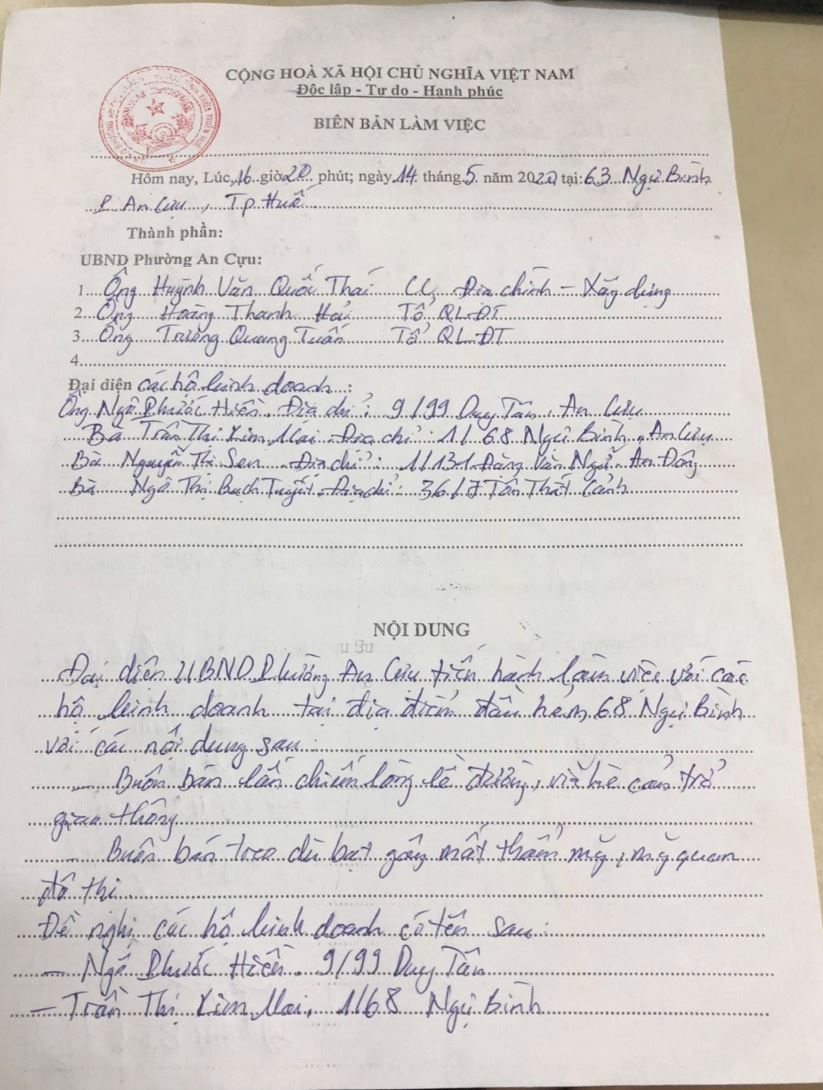 CỘNG HOÀ XÃ HỘI CHỦ NGHĨA VIỆT NAM
Độc lập - Tự do - Hạnh phúc
BIÊN BẢN LÀM VIỆC
Hôm nay, Lúc 16 giờ 20 phút; ngày 14 tháng 5 năm 2020 tại: 63 Ngự Bình
P An Cựu, Tp Huế.
Thành phần:
UBND Phường An Cựu:
1. Ông Huỳnh Văn Quốc Thái CC, Địa chính - Xây dựng
2. Ông Hoàng Thanh Hải Tổ QL-ĐT
3. Ông Trương Quang Tuấn Tổ QL-ĐT
4.
Đại diện các hộ kinh doanh:
Ông Ngô Phước Hiền. Địa chỉ: 9/99 Duy Tân, An Cựu
Bà Trần Thị Kim Mai. Địa chỉ: 1/68 Ngự Bình, An Cựu
Bà Nguyễn Thị Sen Địa chỉ: 1/131 Đặng Văn Ngữ, An Đông
Bà Ngô Thị Bạch Tuyết. Địa chỉ: Tôn Thất Cảnh
NỘI DUNG
Đại diện UBND Phường An Cựu tiến hành làm việc với các
hộ kinh doanh tại địa điểm đầu kẻm 68 Ngự Bình
với các nội dung sau:
- Buôn bán lấn chiếm lòng lề đường, vỉa hè cản trở
giao thông
- Buôn bán treo dù bạt gây mất thẩm mỹ, mỹ quan
đô thị.
Đề nghị các hộ kinh doanh có tên sau:
- Ngô Phước Hiền. 9/99 Duy Tân
- Trần Thị Kim Mai, 1/68 Ngự Bình